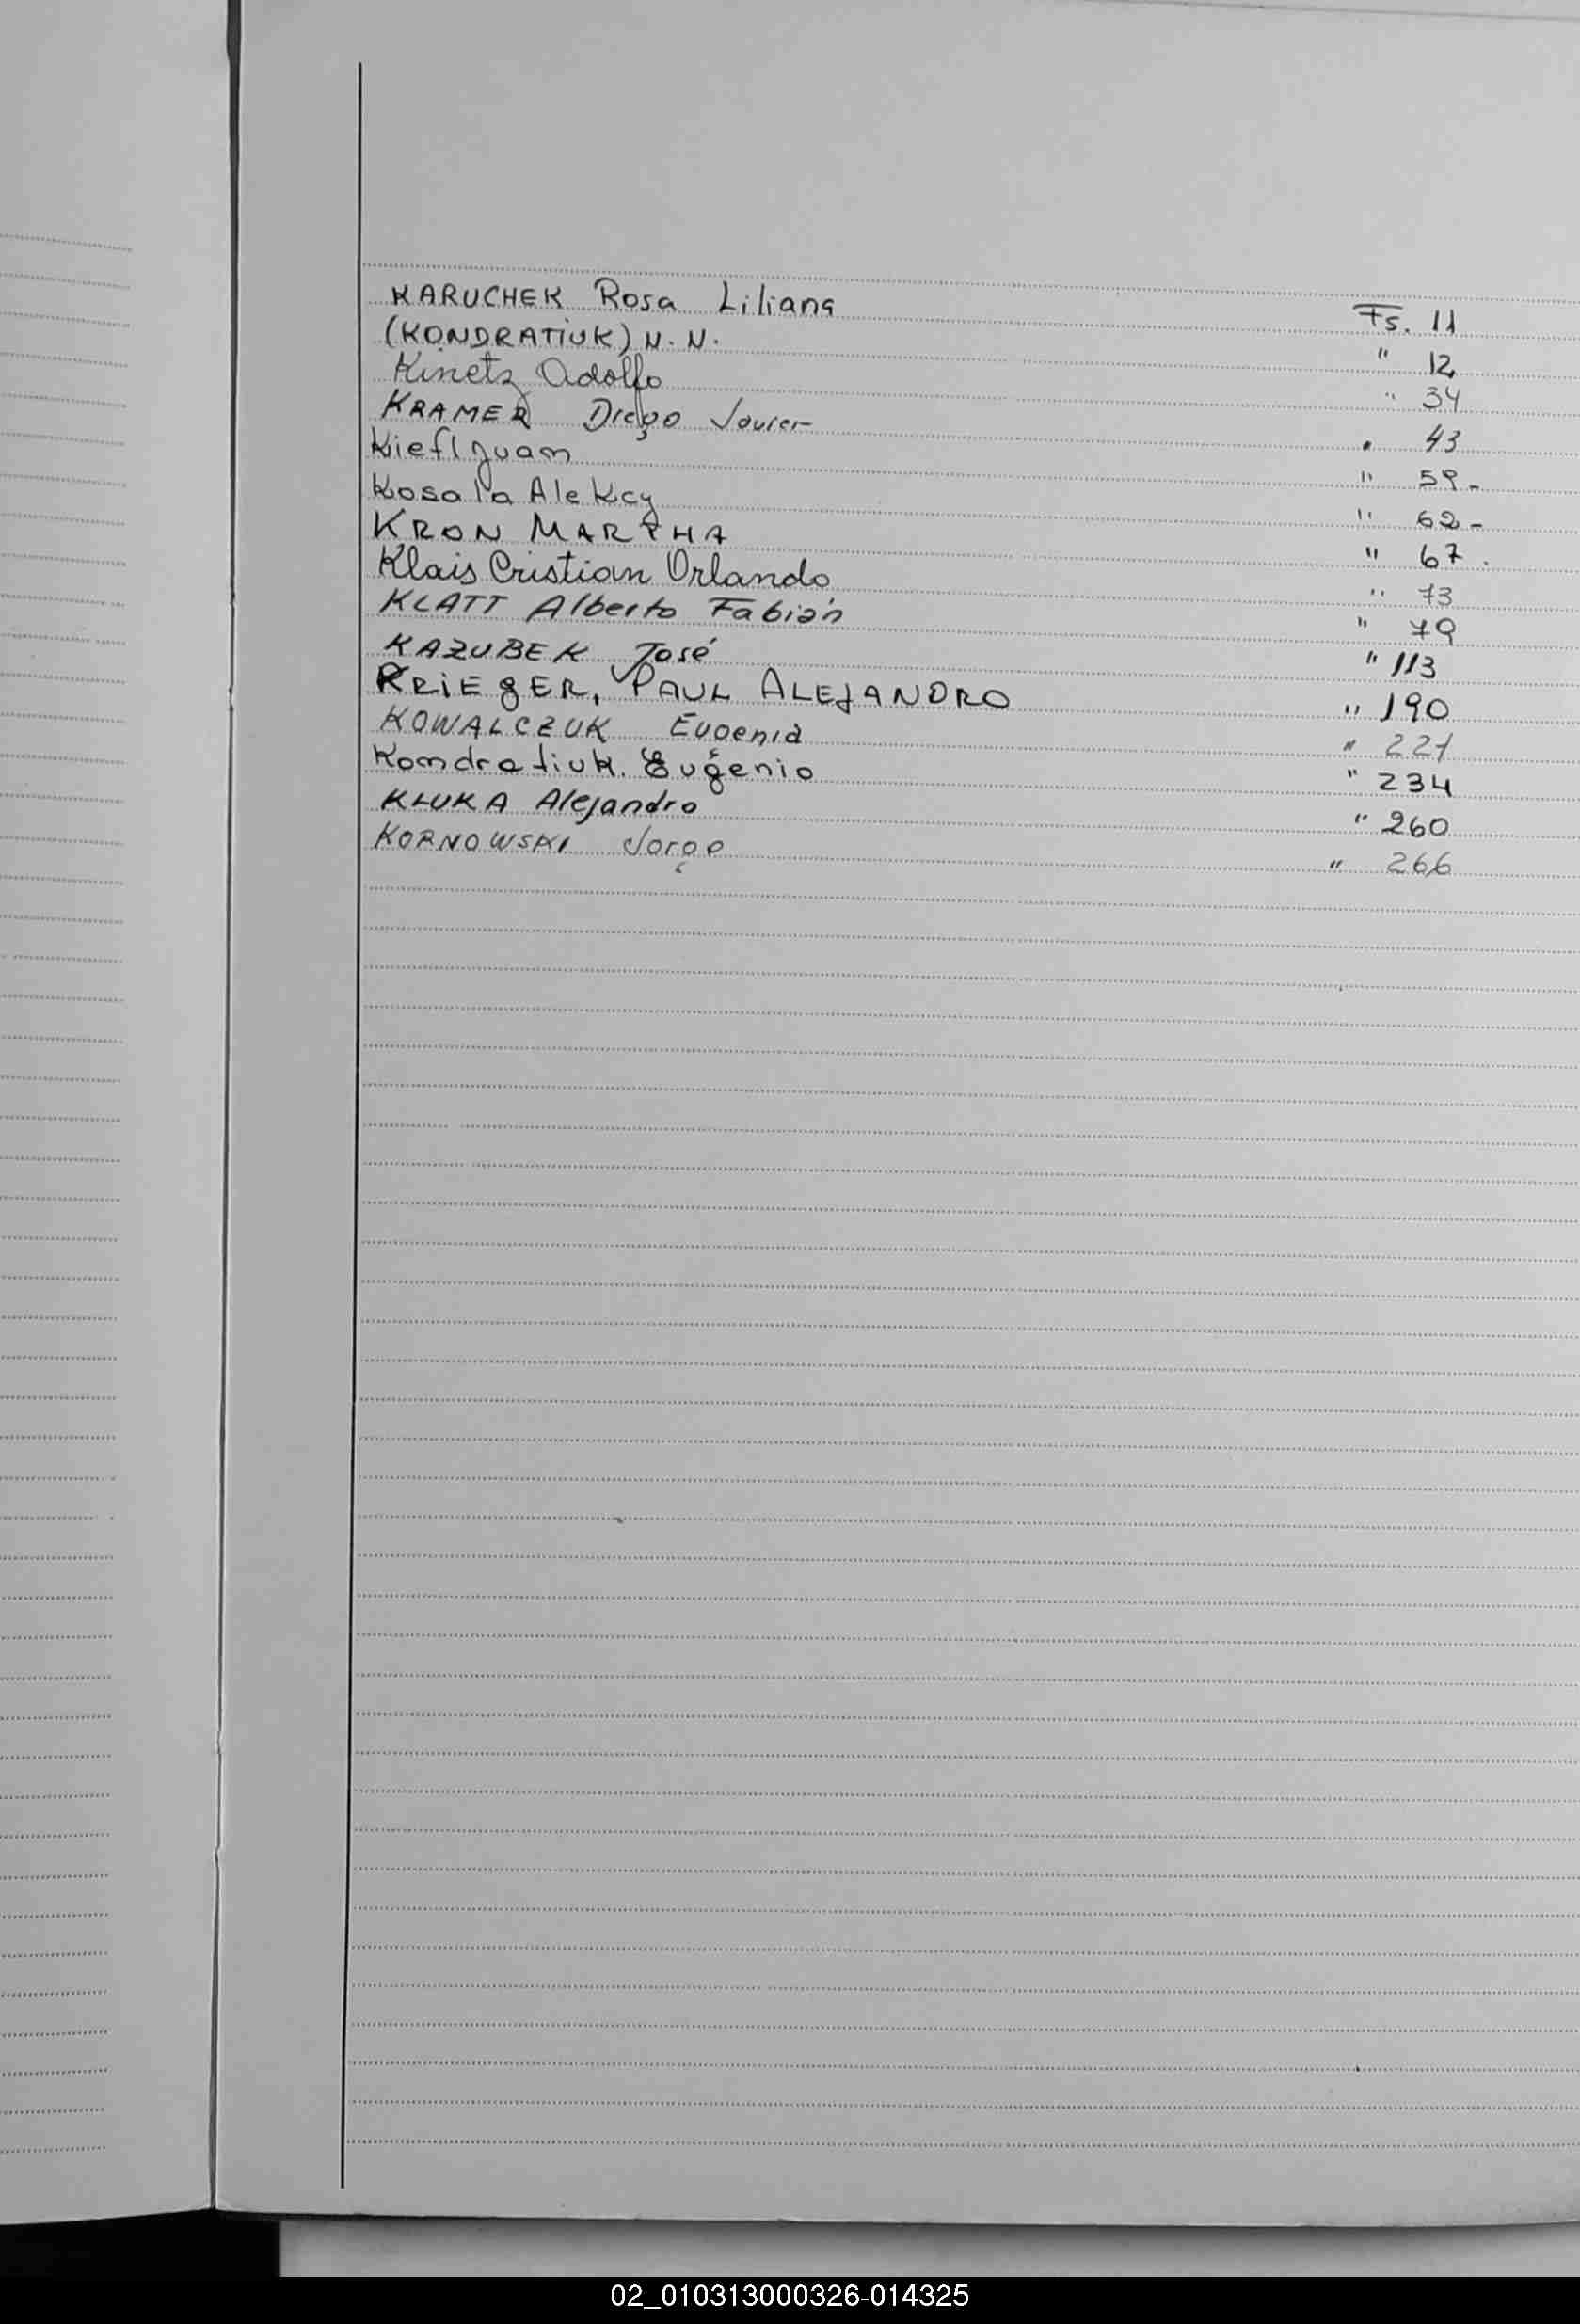 KARUCHEK Rosa Liliana Fs. 11
(KONDRATIUK) N.N. " 12
Kinetz Adolfo " 34
KRAMER Diego Javier " 43
Kiefl Juan " 59-
Kosala Alekcy " 62-
KRON MARTHA " 67.
Klais Cristian Orlando " 73
KLATT Alberto Fabián " 79
KAZUBEK José " 113
KRIEGER, PAUL ALEJANDRO " 190
KOWALCZUK Eugenia " 221
Kondratiuk. Eugenio " 234
KLUKA Alejandro " 260
KORNOWSKI Jorge " 266
02_010313000326-014325